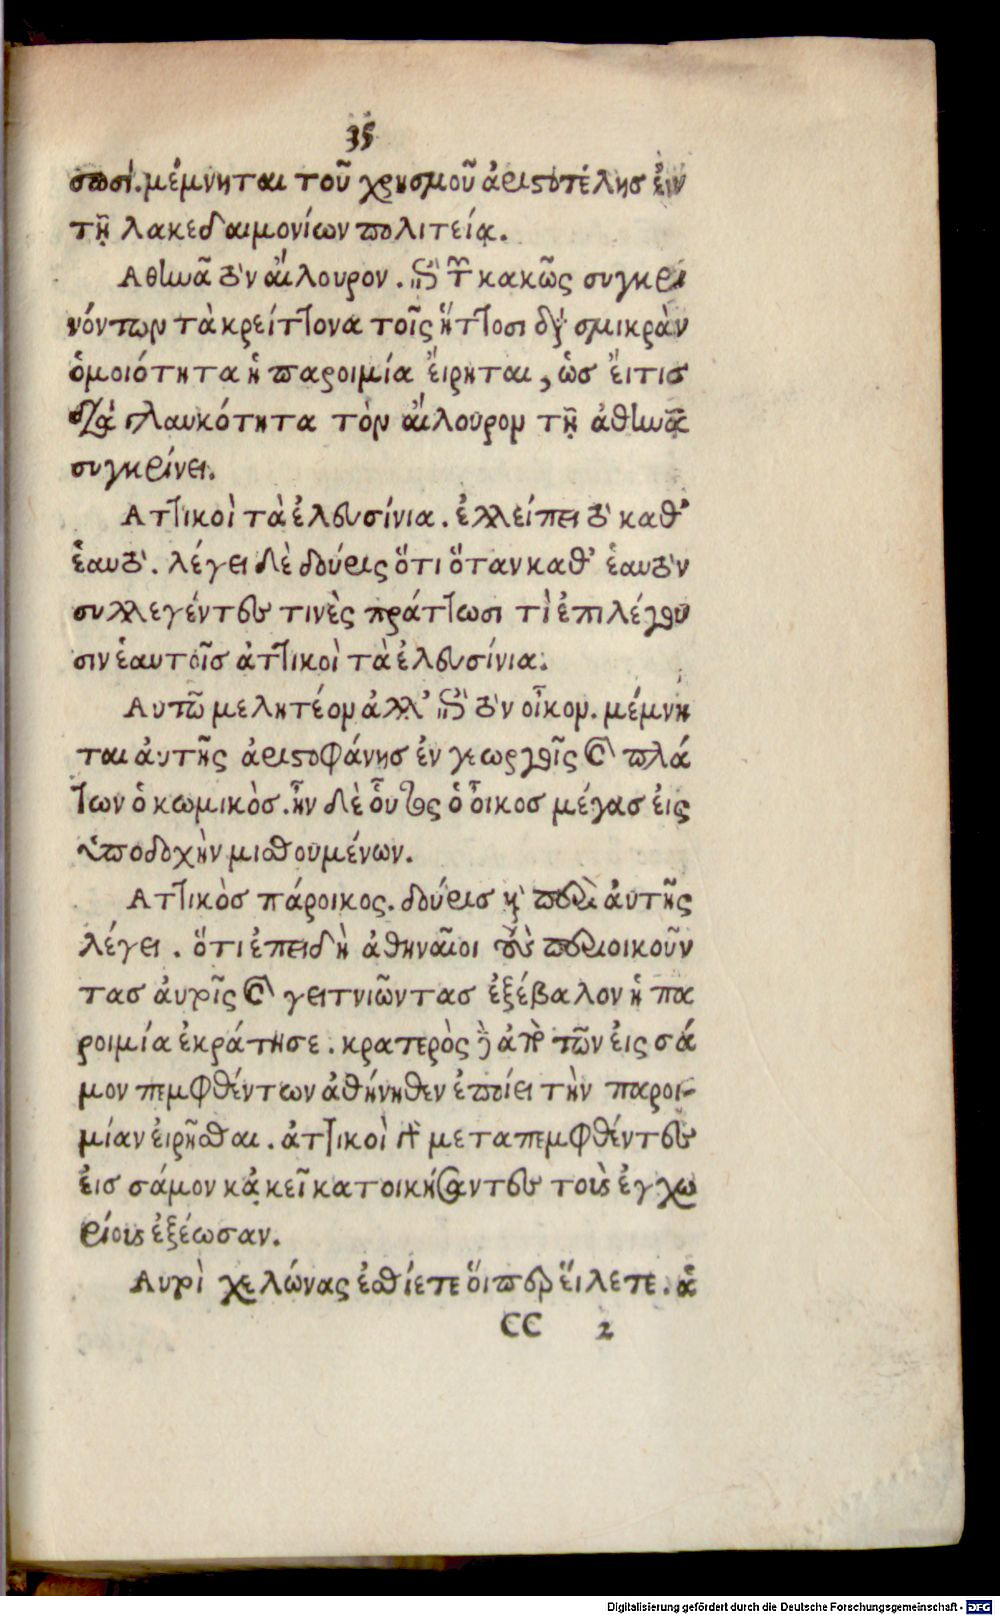 35
σωσί. μέμνηται τοῦ χρησμοῦ ἀριστοτέλης ἐν
τῇ λακεδαιμονίων πολιτείᾳ.
Αθηνᾶ τὸν αἴλουρον. ἐπὶ τῶν κακῶς συγκρι
νόντων τὰ κρείττονα τοῖς ἥττοσι διὰ σμικρὰν
ὁμοιότητα ἡ παροιμία ἔιρηται, ὡς ἔιτις
διὰ γλαυκότητα τὸν αἴλουρον τῇ ἀθηνᾷ
συγκρίνει.
Αττικοὶ τὰ ἐλευσίνια. ἐλλείπει τὸ καθ’
ἑαυτὸ. λέγει δὲ δούρις ὅτι ὅταν καθ’ ἑαυτὸν
συλλεγέντες τινὲς πράττωσι τὶ ἐπιλέγου
σιν ἑαυτοῖς ἀττικοὶ τὰ ἐλευσίνια.
Αυτῶ μελητέον ἀλλ’ ἐπὶ τὸν οἶκον. μέμνη
ται ἀυτῆς ἀριστοφάνης ἐν γεωργοῖς καὶ πλά
των ὁ κωμικὸς. ἦν δὲ οὗτος ὁ οἶκος μέγας ἐις
ὑποδοχὴν μισθουμένων.
Αττικὸς πάροικος. δούρις μὲν περὶ ἀυτῆς
λέγει. ὅτι ἐπειδὴ ἀθηναῖοι τοὺς περιοικοῦν
τας ἀυτοῖς καὶ γειτνιῶντας ἐξέβαλον ἡ πα
ροιμία ἐκράτησε. κρατερὸς δὲ ἀπὸ τῶν ἐις σά
μον πεμφθέντων ἀθήνηθεν ἐποίει τὴν παροι-
μίαν ἐιρῆσθαι. ἀττικοὶ γὰρ μεταπεμφθέντες
ἐις σάμον κᾀκεῖ κατοικήσαντες τοὺς ἐγχω
ρίους ἐξέωσαν.
Αυτοὶ χελώνας ἐσθίετε ὅιπερ ἕιλετε. ἁ
CC 2
Digitalisierung gefördert durch die Deutsche Forschungsgemeinschaft - DFG